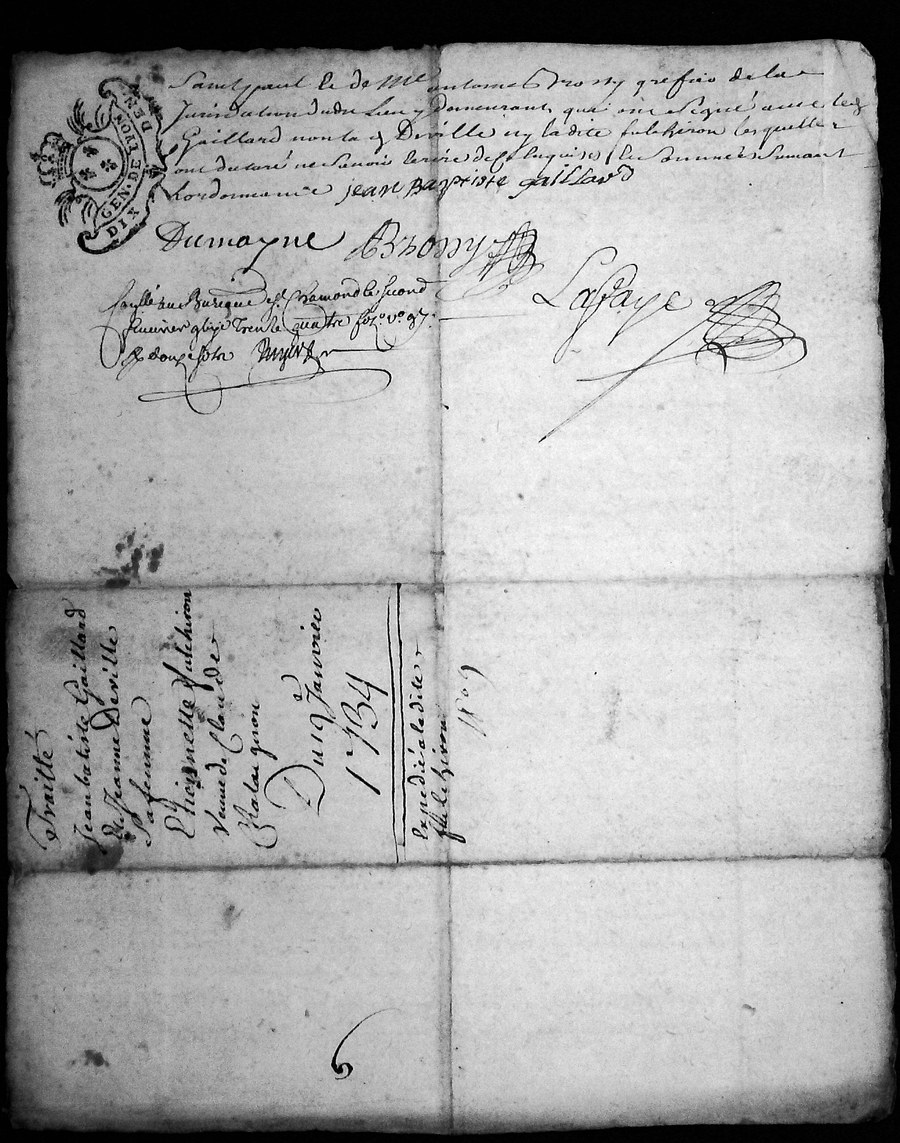 GEN. DE LYON
DIX DEN.
Saint paul et de Me antoine Brossy grefier de la
Jurisdiction dudit Lieu y Demeurant qui ont signé avec led
Gaillard non la d Deville ny ladite fulchiron lesquelles
ont declaré ne savoir ecrire de ce enquises et Sommées Suivant
Lordonnance jean Baptiste gaillard
Dumayne ABrossy
Lafaye
Conllé au Bureau de St Chamond le second
feuvrier 1734 Trente quatre fo vo 97
R douze sols
Traitté
Jean batiste Gaillard
du Jeanne Deville
Sa femme
Etiennette fulchiron
Veuve de Claude
Chalaignon
Du 19e Janvier
1734
Expedié a ladite
fulchiron